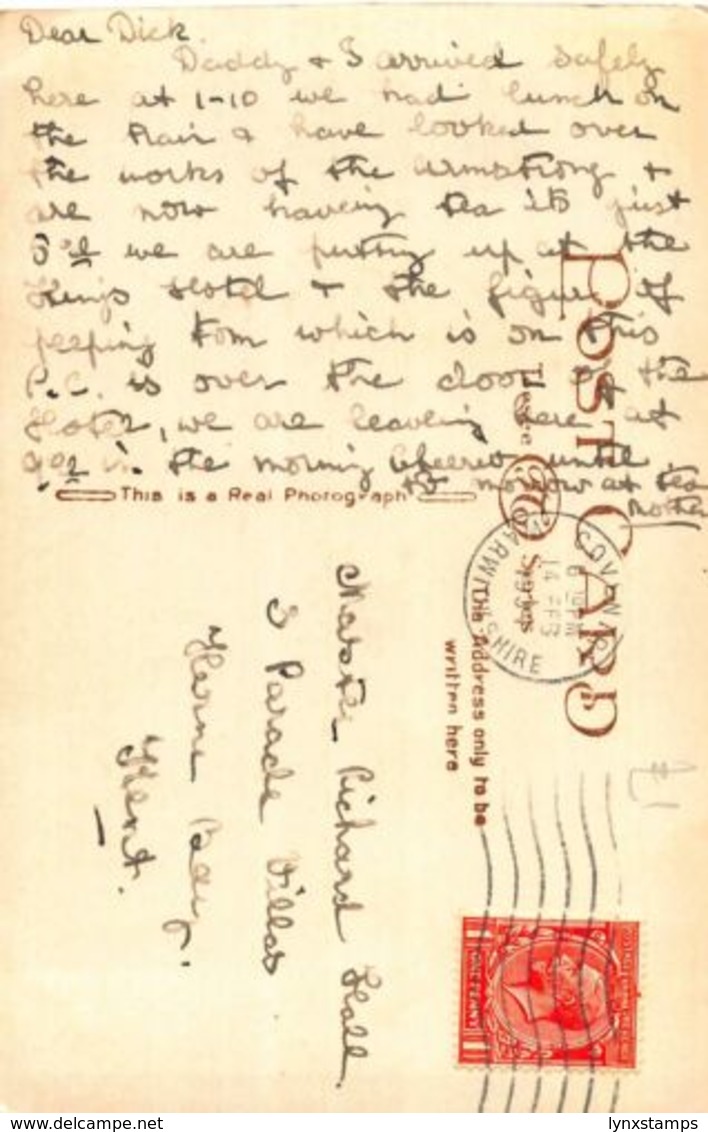 Dear Dick.
Daddy & I arrived safely
here at 1-10 we had lunch on
the train & have looked over
the works of the Armstrong &
are now having tea its just
5 we are putting up at the
Kings Hotel & the figure of
peeping Tom which is on this
P.C. is over the door of the
Hotel, we are leaving here at
9 in the morning Cheerio until
to morrow at tea
Mother
This is a Real Photograph
POST CARD
The Address only to be
written here
COVENTRY
WARWICKSHIRE
14 FEB
Master Richard Hall.
3 Parade Villas
Herne Bay.
Kent.
delcampe.net
lynxstamps